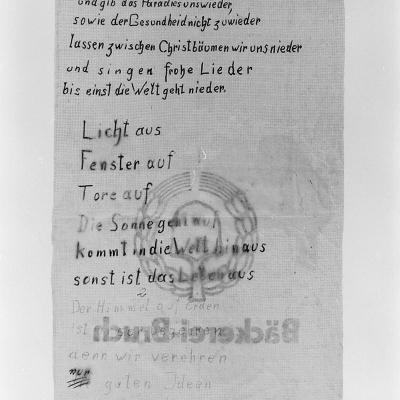 und gib das Paradies uns wieder,
sowie der Gesundheid nicht zuwieder
lassen zwischen Christbäumen wir uns nieder
und singen frohe Lieder
bis einst die Welt geht nieder.
Licht aus
Fenster auf
Tore auf
Die Sonne geht auf
kommt in die Welt hinaus
sonst ist das Leben aus
2
Der Himmel auf Erden
ist
Bäckerei Bruch
denn wir verehren
nur
guten Ideen